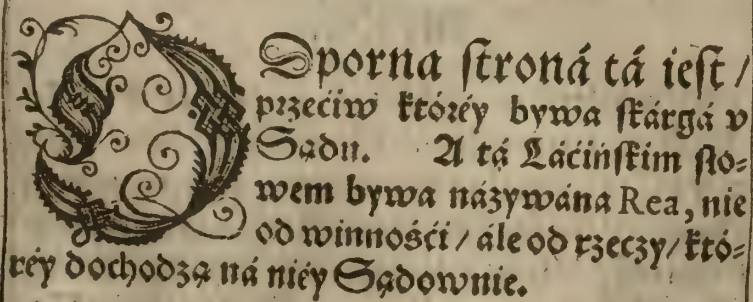 OSporna ſtroná tá ieſt /
przećiw któréy bywa ſkárgá v
Sądu. A tą Láćińſkim ſło⸗
wem bywa názywána Rea, nie
od winnośći / ále od rzeczy / któ⸗
réy dochodzą ná niéy Sądownie.